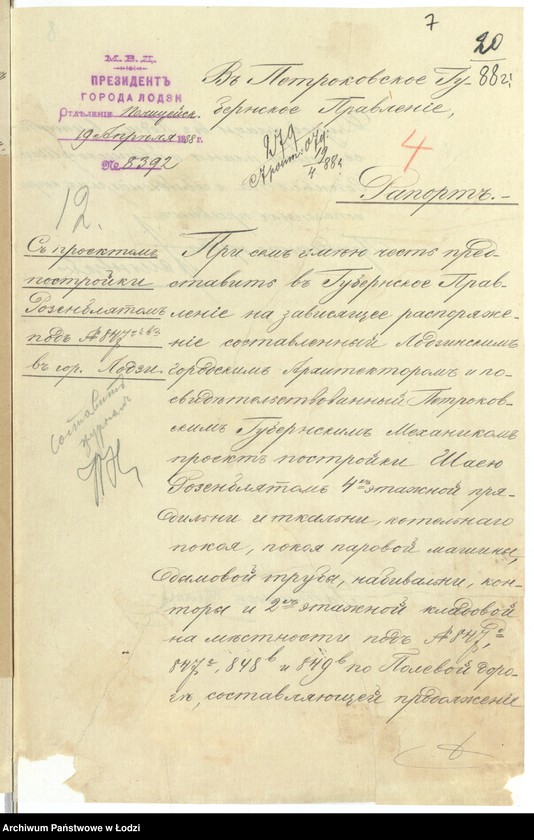 7
20
88 г.
М. В. Д.
ПРЕЗИДЕНТЪ
ГОРОДА ЛОДЗИ
Отдѣленіе Полицейск.
19 Апрѣля 1888 г.
№ 8392
Въ Петроковское Гу-
бернское Правленіе,
279
19
4 88 г.
4
Рапортъ.-
12.
Съ проектомъ
постройки
Розенблятомъ
подъ № 847
въ гор. Лодзи.
составить
журналъ
При семъ имѣю честь пред-
ставить въ Губернское Прав-
леніе на зависящее распоряже-
ніе составленный Лодзинскимъ
городскимъ Архитекторомъ и по-
свидѣтельствованный Петроков-
скимъ Губернскимъ Механикомъ
проектъ постройки Шаею
Розенблятомъ 4хъ этажной пря-
дильни и ткальни, котельнаго
покоя, покоя паровой машины,
дымовой трубы, набивальни, кон-
торы и 2хъ этажной кладовой
на мѣстности подъ № 847
847, 848 в и 849 в по Полевой доро-
гѣ, составляющей продолженіе
Archiwum Państwowe w Łodzi